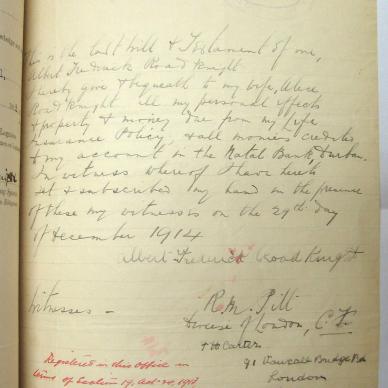 This is the last will & Testament of me,
Albert Fredrick Road Knight
I hereby give & bequeath to my wife, Alice
Road Knight all my personal effects
& property & money due from my Life
Insurance Policy, & all monies credited
to my account in the Natal Bank, Durban.
In witness whereof I have hereto
set & subscribed my hand in the presence
of these my witnesses on the 29th day
of December 1914
Albert Frederick Road Knight
Witnesses –
R. M. Pitt
House of London,
Carter
91 Vauxhall Bridge Rd
London
Registered in this Office in
terms of Section 19, Act 24, 1913